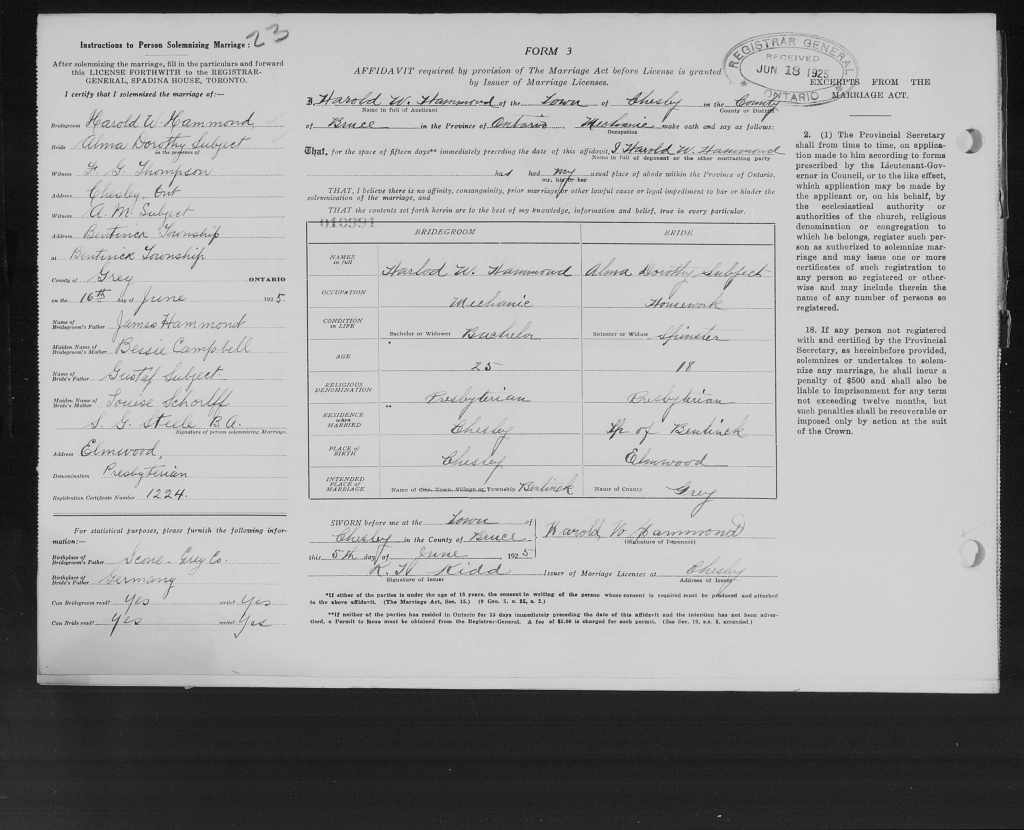 Instructions to Person Solemnizing Marriage:
23
After solemnizing the marriage, fill in the particulars and forward
this LICENSE FORTHWITH to the REGISTRAR-
GENERAL, SPADINA HOUSE, TORONTO.
I certify that I solemnized the marriage of:—
Bridegroom Harold W. Hammond
Bride Alma Dorothy Subject
in the presence of
Witness F. G. Thompson
Address Chesley, Ont
Witness A. M. Subject
Address Bentinck Township
at Bentinck Township
County of Grey ONTARIO
on the 16th day of June 1925
Name of Bridegroom's Father James Hammond
Maiden Name of Bridegroom's Mother Bessie Campbell
Name of Bride's Father Gustaf Subject
Maiden Name of Bride's Mother Louise Schorlff
S. G. Steele B.A.
Signature of person solemnizing Marriage.
Address Elmwood,
Denomination Presbyterian
Registration Certificate Number 1224.
For statistical purposes, please furnish the following infor-
mation:—
Birthplace of Bridegroom's Father Scone. Grey Co.
Birthplace of Bride's Father Germany
Can Bridegroom read? Yes write? Yes
Can Bride read? Yes write? Yes
FORM 3
AFFIDAVIT required by provision of The Marriage Act before License is granted
by Issuer of Marriage Licenses.
I, Harold W. Hammond of the Town of Chesley in the County
Name in full of Applicant County or District
of Bruce in the Province of Ontario Mechanic make oath and say as follows:
Occupation
That, for the space of fifteen days** immediately preceding the date of this affidavit, I Harold W. Hammond
Name in full of deponent or the other contracting party
had had my usual place of abode within the Province of Ontario.
my, his or her
THAT, I believe there is no affinity, consanguinity, prior marriage or other lawful cause or legal impediment to bar or hinder the
solemnization of the marriage, and
THAT the contents set forth herein are to the best of my knowledge, information and belief, true in every particular.
010991
BRIDEGROOM BRIDE
NAMES in full Harlod W. Hammond Alma Dorothy Subject
OCCUPATION Mechanic Housework
CONDITION in LIFE Bachelor or Widower Bachelor Spinster or Widow Spinster
AGE 25 18
RELIGIOUS DENOMINATION Presbyterian Presbyterian
RESIDENCE when MARRIED Chesley Tp of Bentinck
PLACE of BIRTH Chesley Elmwood
INTENDED PLACE of MARRIAGE Name of City, Town, Village or Township Bentinck Name of County Grey
SWORN before me at the Town of
Chesley in the County of Bruce
this 5th day of June 1925
Harold W Hammond
(Signature of Deponent)
K. W. Kidd Issuer of Marriage Licenses at Chesley
Signature of Issuer Address of Issuer
*If either of the parties is under the age of 18 years, the consent in writing of the person whose consent is required must be produced and attached
to the above affidavit. (The Marriage Act, Sec. 15.) (9 Geo. V. c. 35, s. 2.)
**If neither of the parties has resided in Ontario for 15 days immediately preceding the date of this affidavit and the intention has not been adver-
tised, a Permit to Issue must be obtained from the Registrar-General. A fee of $5.00 is charged for such permit. (See Sec. 19, s.s. 5, amended.)
REGISTRAR GENERAL
RECEIVED
JUN 18 1925
ONTARIO
EXCERPTS FROM THE
MARRIAGE ACT.
2. (1) The Provincial Secretary
shall from time to time, on applica-
tion made to him according to forms
prescribed by the Lieutenant-Gover-
nor in Council, or to the like effect,
which application may be made by
the applicant or, on his behalf, by
the ecclesiastical authority or
authorities of the church, religious
denomination or congregation to
which he belongs, register such per-
son as authorized to solemnize mar-
riage and may issue one or more
certificates of such registration to
any person so registered or other-
wise and may include therein the
name of any number of persons so
registered.
18. If any person not registered
with and certified by the Provincial
Secretary, as hereinbefore provided,
solemnizes or undertakes to solem-
nize any marriage, he shall incur a
penalty of $500 and shall also be
liable to imprisonment for any term
not exceeding twelve months, but
such penalties shall be recoverable or
imposed only by action at the suit
of the Crown.